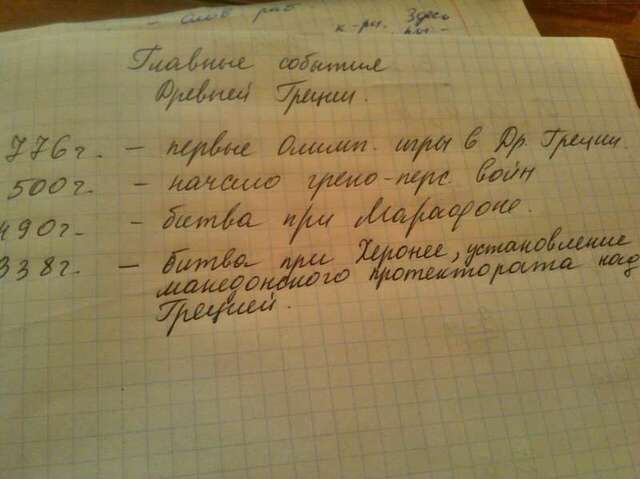 – слов раб
к-ри. Здесь
Главные события
Древней Греции.
776г. – первые Олимп. игры в Др. Греции.
500г. – начало греко-перс. войн
490г. – битва при Марафоне.
338г. – битва при Херонее, установление
македонского протектората над
Грецией.